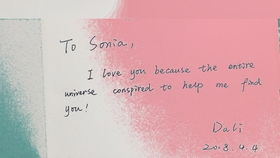 To Sonia,
I love you because the entire
universe conspired to help me find
you!
Dali
2018.4.4